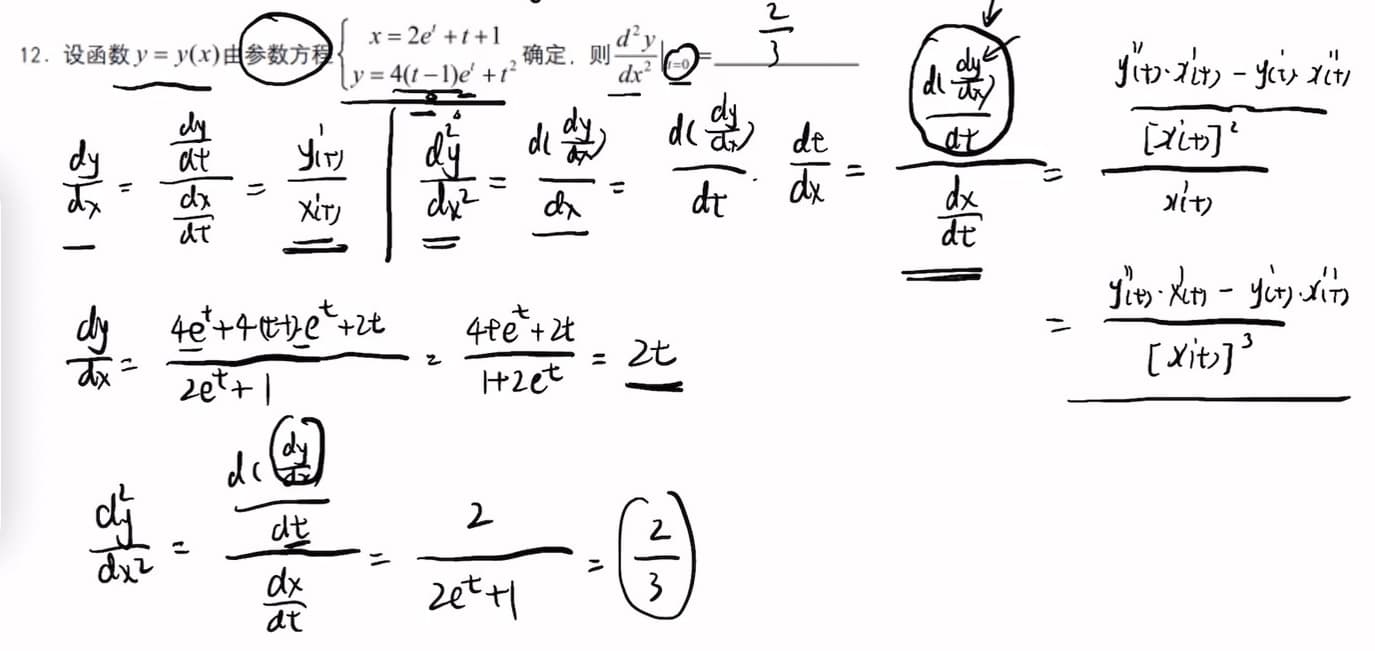 12. 设函数 y = y(x)由参数方程 { x = 2e^t + t + 1, y = 4(t−1)e^t + t^2 确定，则 d²y/dx² |_{t=0} = 2/3
dy/dx = (dy/dt)/(dx/dt) = y'(t)/x'(t) | d²y/dx² = d(dy/dx)/dx = d(dy/dx)/dt · dt/dx = (d(dy/dx)/dt)/(dx/dt) = ((y''(t)·x'(t) − y'(t) x''(t))/[x'(t)]²)/x'(t)
= (y''(t)·x'(t) − y'(t)·x''(t))/[x'(t)]³
dy/dx = (4e^t + 4(t-1)e^t + 2t)/(2e^t + 1) = (4te^t + 2t)/(1+2e^t) = 2t
d²y/dx² = (d(dy/dx)/dt)/(dx/dt) = 2/(2e^t + 1) = 2/3